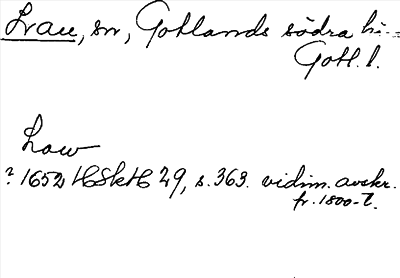 Lrau, sn, Gotlands södra hd
Gotl. l.
Law
? 1652 HSkH 29, s. 363. vidim. avskr.
fr. 1800-t.